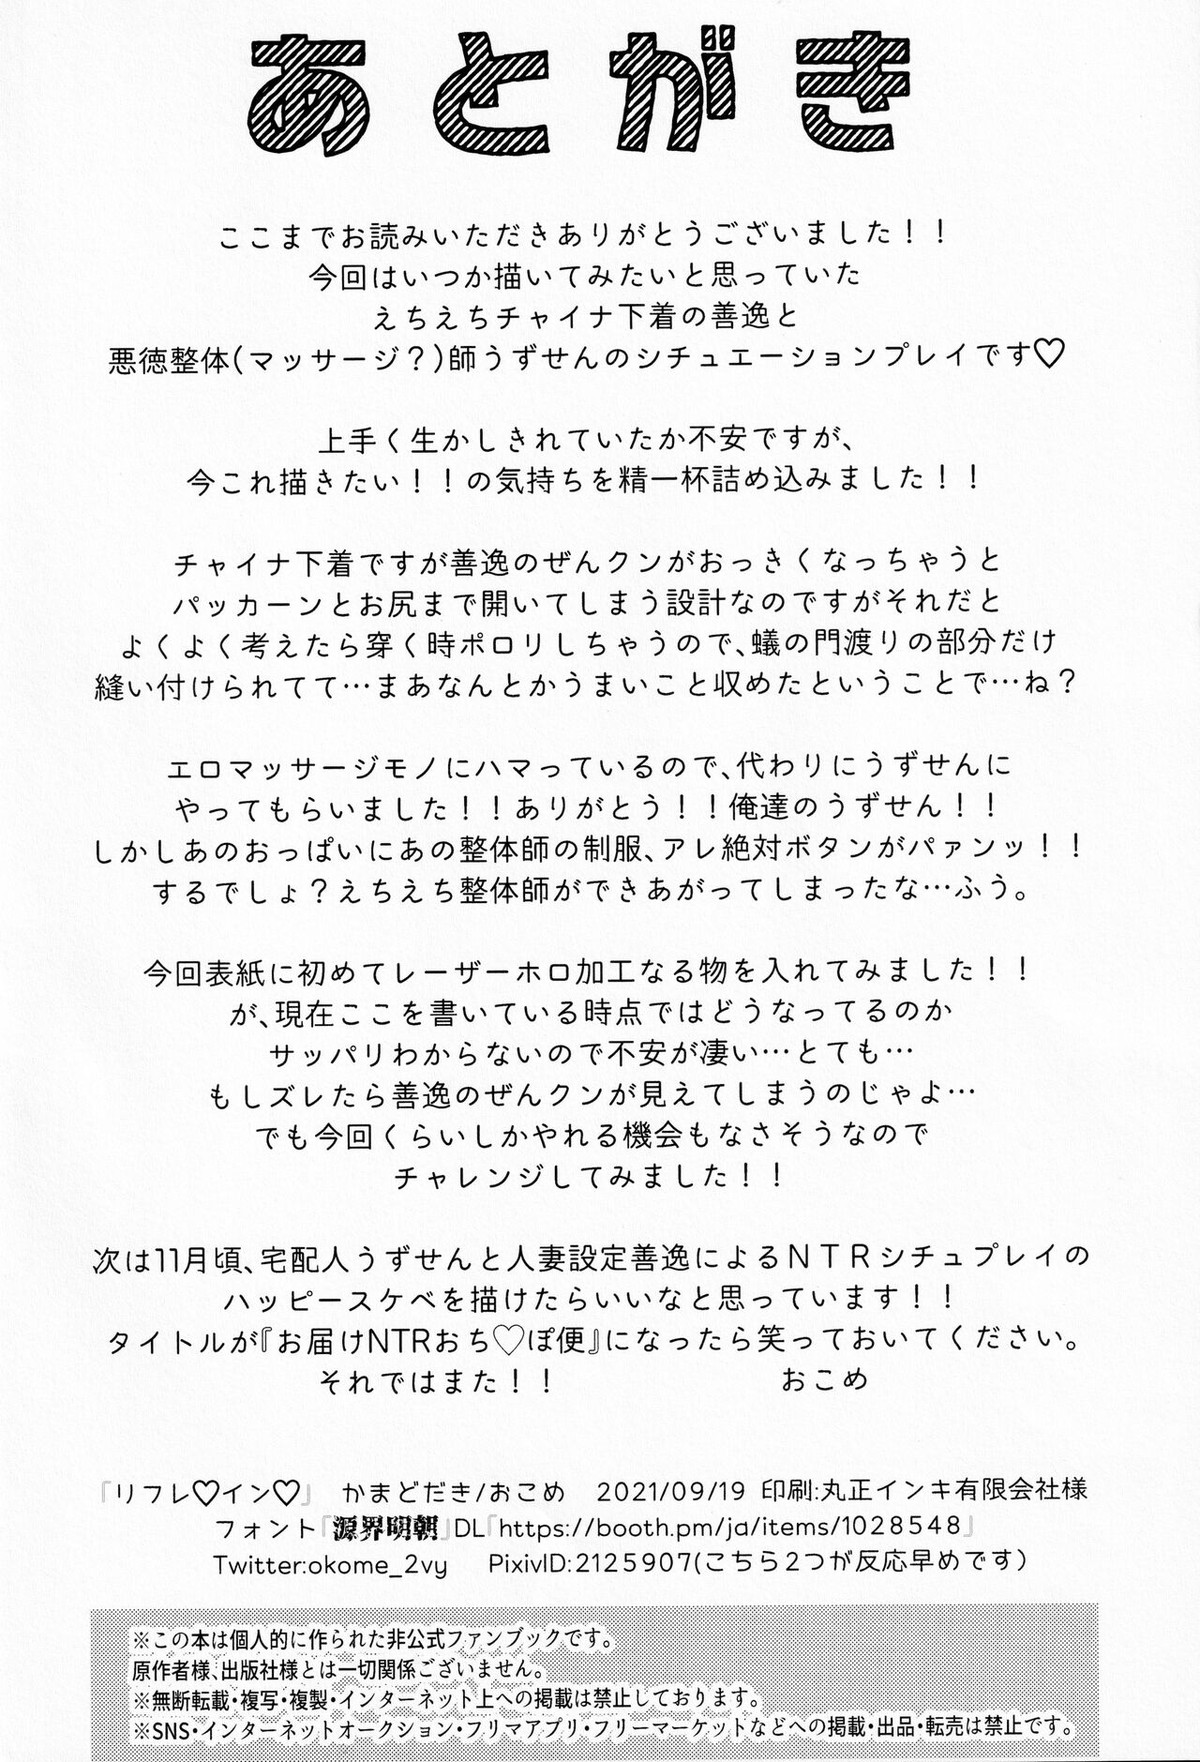 あとがき
ここまでお読みいただきありがとうございました！！
今回はいつか描いてみたいと思っていた
えちえちチャイナ下着の善逸と
悪徳整体(マッサージ？)師うずせんのシチュエーションプレイです♡
上手く生かしきれていたか不安ですが、
今これ描きたい！！の気持ちを精一杯詰め込みました！！
チャイナ下着ですが善逸のぜんクンがおっきくなっちゃうと
パッカーンとお尻まで開いてしまう設計なのですがそれだと
よくよく考えたら穿く時ポロリしちゃうので、蟻の門渡りの部分だけ
縫い付けられてて…まあなんとかうまいこと収めたということで…ね？
エロマッサージモノにハマっているので、代わりにうずせんに
やってもらいました！！ありがとう！！俺達のうずせん！！
しかしあのおっぱいにあの整体師の制服、アレ絶対ボタンがパァンッ！！
するでしょ？えちえち整体師ができあがってしまったな…ふう。
今回表紙に初めてレーザーホロ加工なる物を入れてみました！！
が、現在ここを書いている時点ではどうなってるのか
サッパリわからないので不安が凄い…とても…
もしズレたら善逸のぜんクンが見えてしまうのじゃよ…
でも今回くらいしかやれる機会もなさそうなので
チャレンジしてみました！！
次は11月頃、宅配人うずせんと人妻設定善逸によるＮＴＲシチュプレイの
ハッピースケベを描けたらいいなと思っています！！
タイトルが『お届けNTRおち♡ぽ便』になったら笑っておいてください。
それではまた！！ おこめ
「リフレ♡イン♡」 かまどだき/おこめ 2021/09/19 印刷:丸正インキ有限会社様
フォント「源界明朝」DL「https://booth.pm/ja/items/1028548」
Twitter:okome_2vy PixivID:2125907(こちら2つが反応早めです)
※この本は個人的に作られた非公式ファンブックです。
原作者様、出版社様とは一切関係ございません。
※無断転載・複写・複製・インターネット上への掲載は禁止しております。
※SNS・インターネットオークション・フリマアプリ・フリーマーケットなどへの掲載・出品・転売は禁止です。